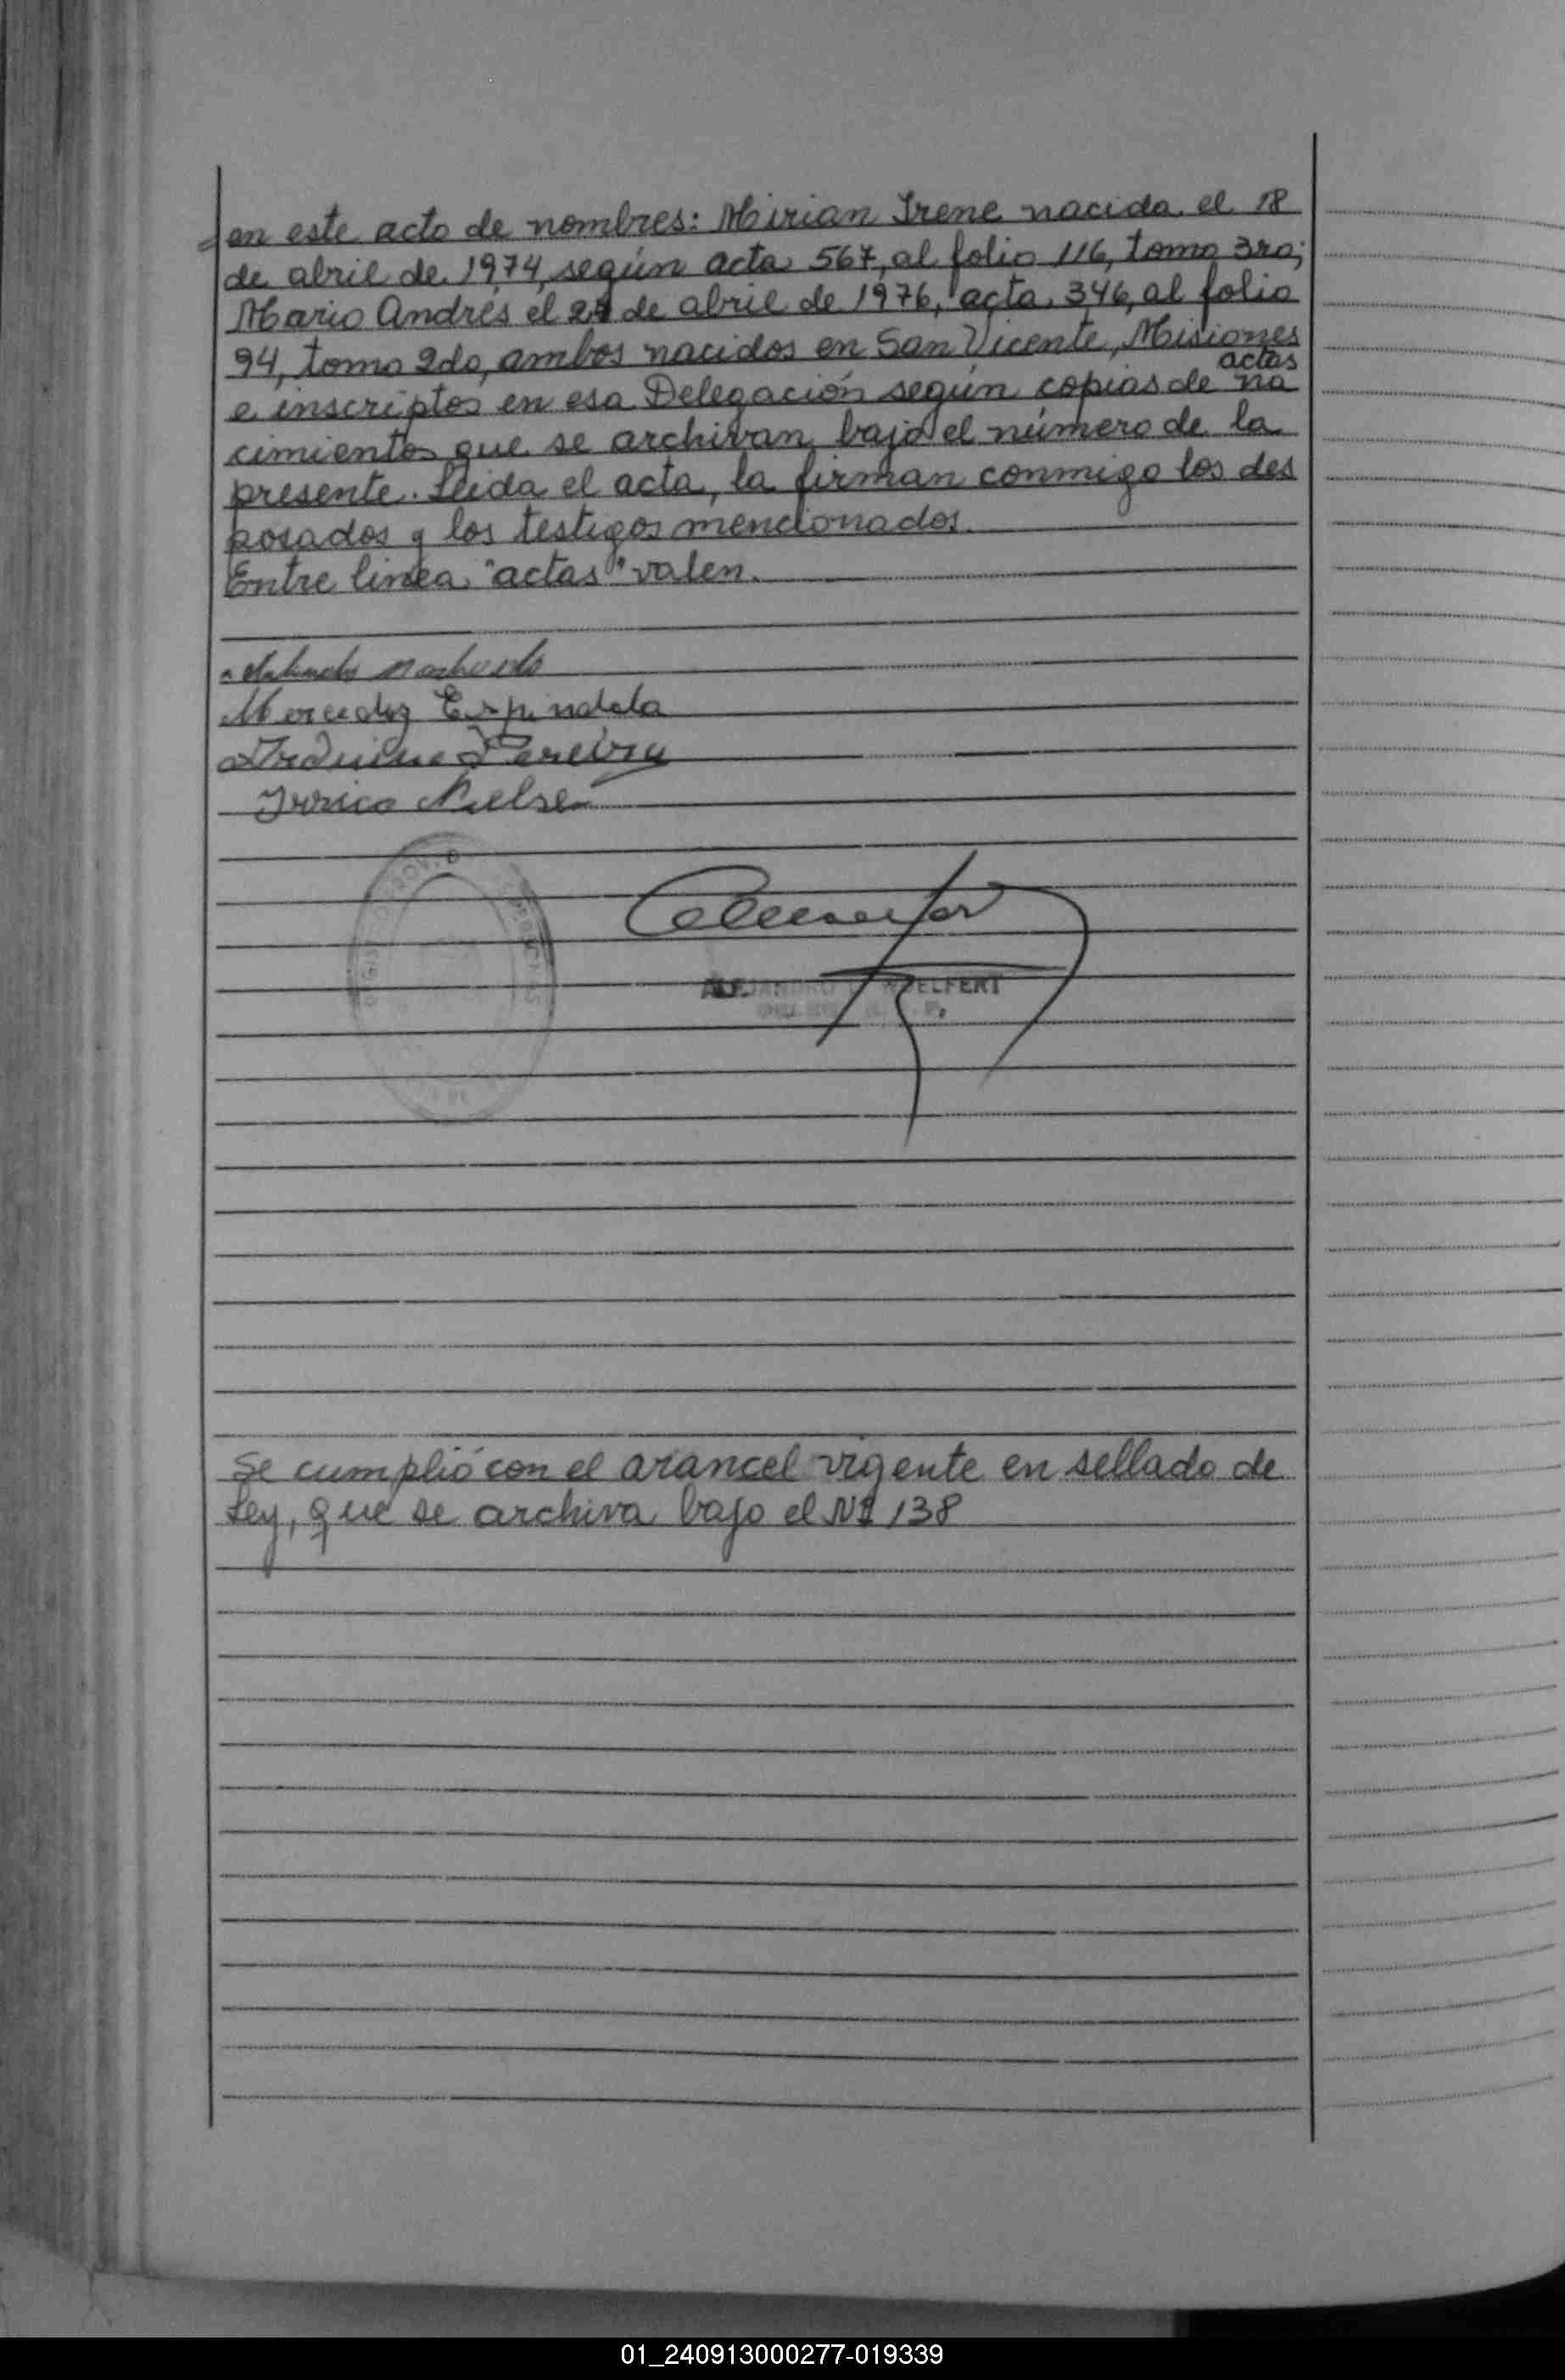 en este acto de nombres: Mirian Irene nacida el 18
de abril de 1974, según acta 567, al folio 116, tomo 3ro;
Mario Andrés el 24 de abril de 1976, acta 346, al folio
94, tomo 2do, ambos nacidos en San Vicente, Misiones
actas
e inscriptos en esa Delegación según copias de na
cimientos que se archivan bajo el número de la
presente. Leida el acta, la firman conmigo los des
posados y los testigos mencionados.
Entre linea "actas" valen.
Machado
Mercedez Espindola
Pereira
Nielsen
ALEJANDRO WELFERT
Se cumplió con el arancel vigente en sellado de
Ley, que se archiva bajo el Nº 138
01_240913000277-019339